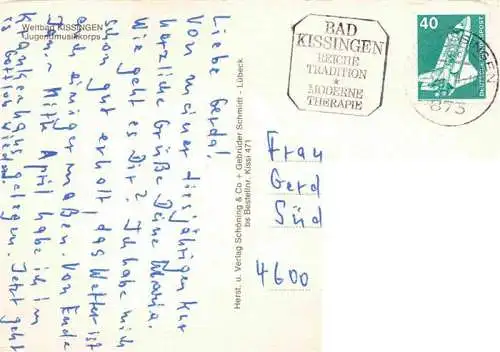 Weltbad KISSINGEN
Jugendmusikkorps
Liebe Gerda!
Von meiner diesjährigen Kur
herzliche Grüße Deine Maria.
Wie geht es Dir? Ich habe mich
schon gut erholt, das Wetter ist
auch einigermaßen. Von Ende
Jan. Mitte April habe ich im
Krankenhaus gelegen. Jetzt geht
es Gottlob wieder.
Herst. u. Verlag Schöning & Co + Gebrüder Schmidt - Lübeck
bs Bestellnr. Kissi 471
BAD
KISSINGEN
REICHE
TRADITION
*
MODERNE
THERAPIE
40
DEUTSCHE BUNDESPOST
873
Frau
Gerd
Süd
4600